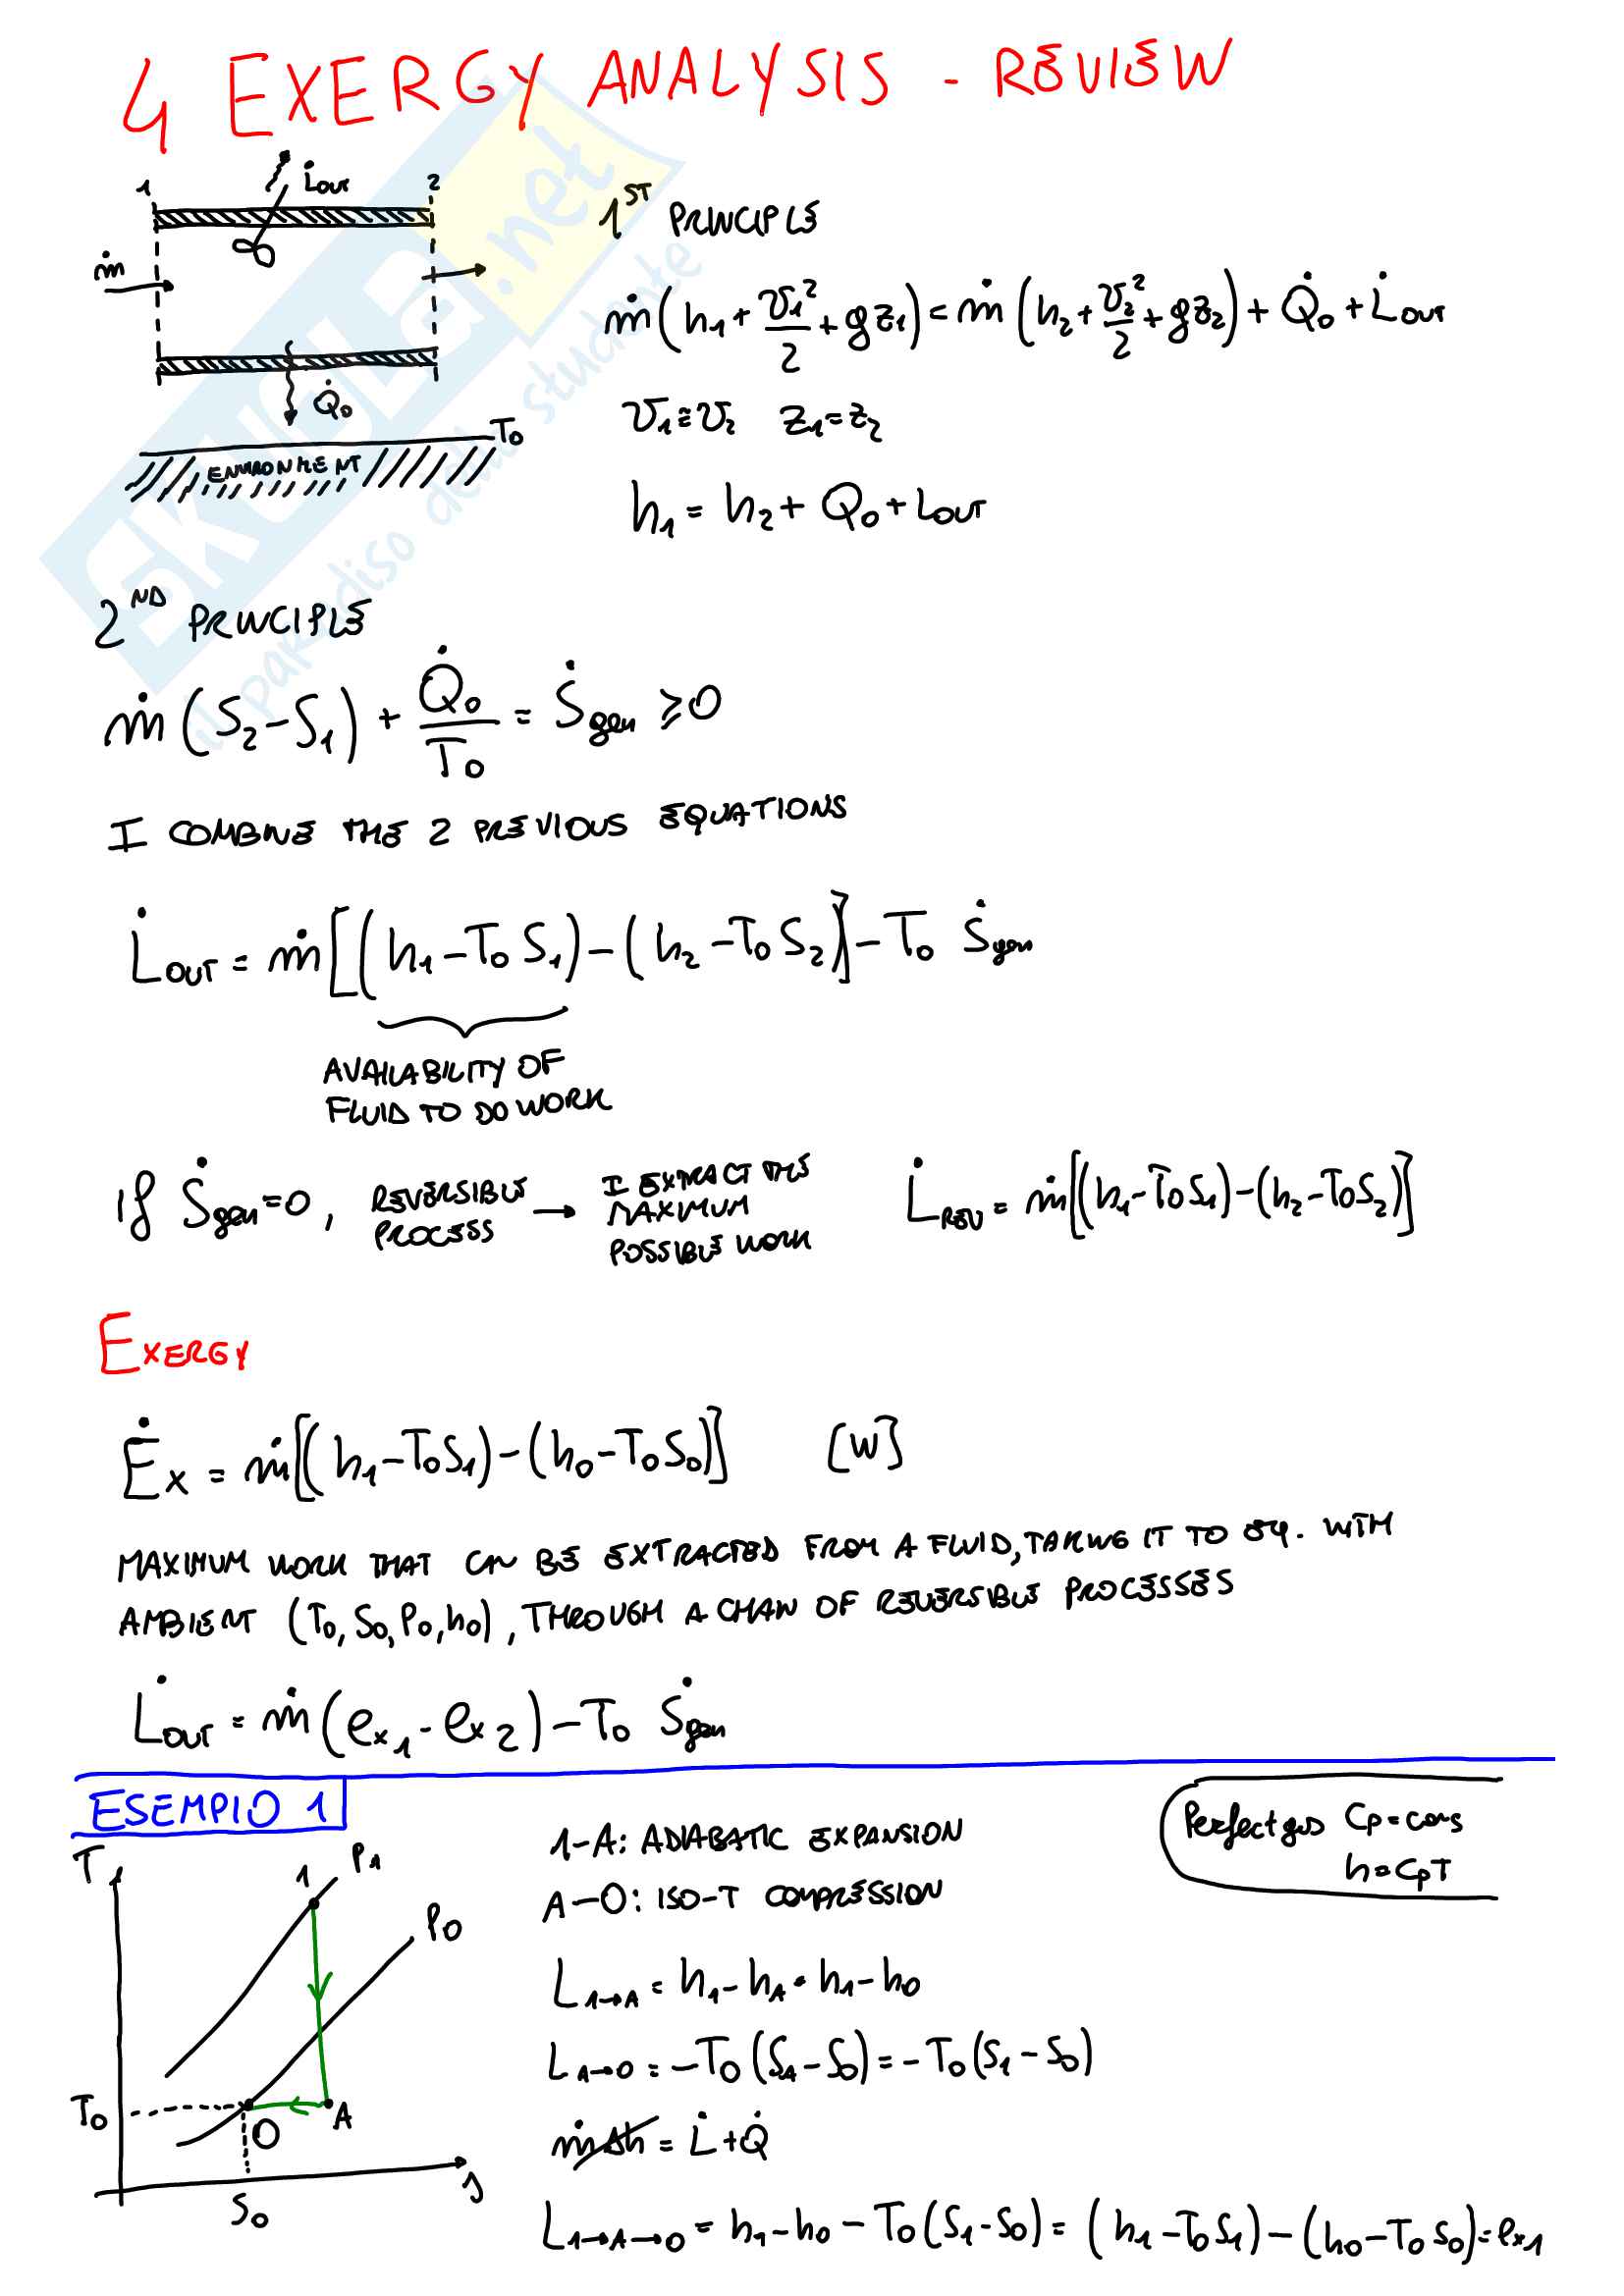 4 EXERGY ANALYSIS - REVIEW
1 L̇out 2
ṁ
Q̇0
T0
ENVIRONMENT
1ST PRINCIPLE
ṁ(h1 + v1²/2 + gz1) = ṁ(h2 + v2²/2 + gz2) + Q̇0 + L̇OUT
v1 ≅ v2 z1 = z2
h1 = h2 + Q0 + LOUT
2ND PRINCIPLE
ṁ(S2 - S1) + Q̇0/T0 = Ṡgen ≥ 0
I COMBINE THE 2 PREVIOUS EQUATIONS
L̇OUT = ṁ[(h1 - T0 S1) - (h2 - T0 S2)] - T0 Ṡgen
AVAILABILITY OF
FLUID TO DO WORK
If Ṡgen = 0, REVERSIBLE PROCESS → I EXTRACT THE MAXIMUM POSSIBLE WORK L̇REV = ṁ[(h1 - T0S1) - (h2 - T0S2)]
EXERGY
Ėx = ṁ[(h1 - T0S1) - (h0 - T0S0)] [W]
MAXIMUM WORK THAT CAN BE EXTRACTED FROM A FLUID, TAKING IT TO EQ. WITH
AMBIENT (T0, S0, P0, h0), THROUGH A CHAIN OF REVERSIBLE PROCESSES
L̇OUT = ṁ(ex1 - ex2) - T0 Ṡgen
ESEMPIO 1
T 1 P1
P0
T0 0 A
S0 s
1-A: ADIABATIC EXPANSION
A-0: ISO-T COMPRESSION
Perfect gas Cp = cons
h = CpT
L1→A = h1 - hA = h1 - h0
LA→0 = -T0(SA - S0) = -T0(S1 - S0)
ṁΔh = L̇ + Q̇
L1→A→0 = h1 - h0 - T0(S1 - S0) = (h1 - T0S1) - (h0 - T0S0) = ex1
SKUOLA.net
il paradiso dello studente